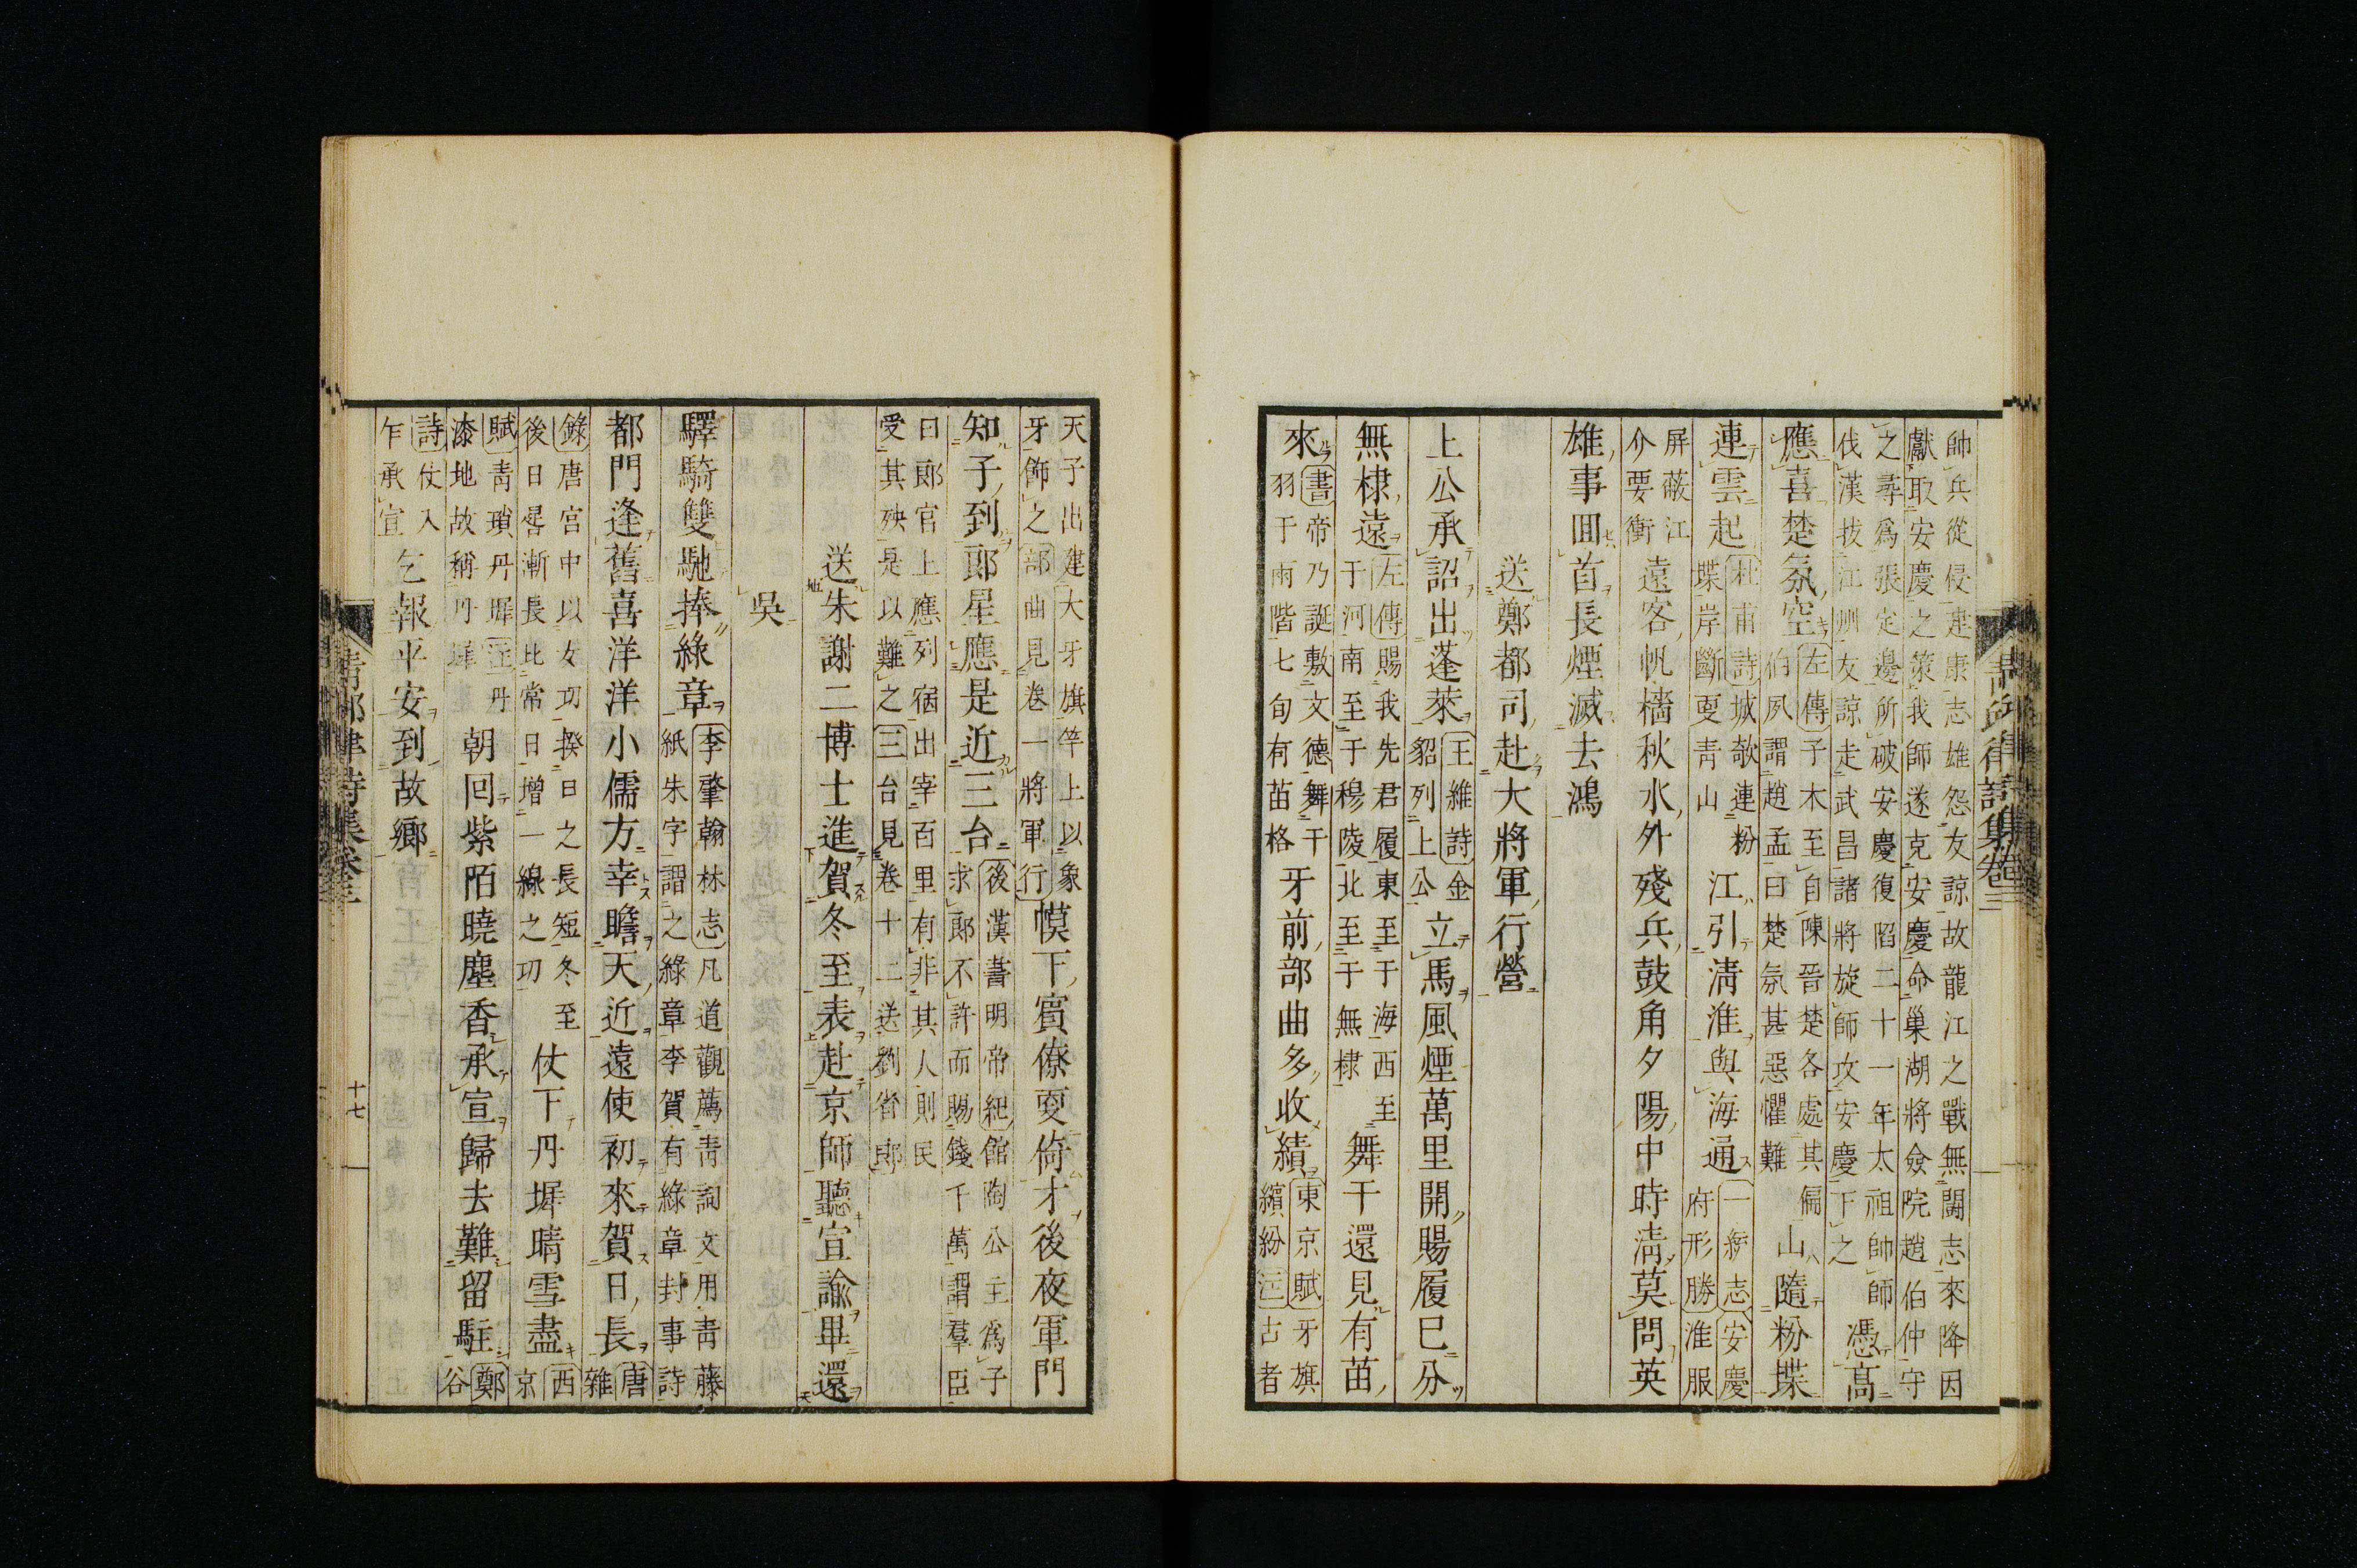 帥兵從侵建康志雄怨友諒故龍江之戰無鬪志來降因
獻取安慶之策我師遂克安慶命巢湖將僉院趙伯仲守
之尋爲張定邊所破安慶復陷二十一年太祖帥師
伐漢拔江州友諒走武昌諸將旋師攻安慶下之
憑高
應喜楚氛空
左傳子木至自陳晉楚各處其偏
伯夙謂趙孟曰楚氛甚惡懼難
山隨粉堞
連雲起
杜甫詩城欹連粉
堞岸斷更青山
江引清淮與海通
一統志安慶
府形勝淮服
屏蔽江
介要衝
遠客帆檣秋水外殘兵鼓角夕陽中時清莫問英
雄事囬首長煙滅去鴻
送鄭都司赴大將軍行營
上公承詔出蓬萊
王維詩金
貂列上公
立馬風煙萬里開賜履巳分
無棣遠
左傳賜我先君履東至于海西至
于河南至于穆陵北至于無棣
舞干還見有苗
來
書帝乃誕敷文德舞干
羽于兩階七旬有苗格
牙前部曲多收績
東京賦牙旗
繽紛注古者
天子出建大牙旗竿上以象
牙飾之部曲見卷一將軍行
幙下賓僚更倚才後夜軍門
知子到郎星應是近三台
後漢書明帝紀館陶公主爲子
求郎不許而賜錢千萬謂羣臣
曰郎官上應列宿出宰百里有非其人則民
受其殃是以難之三台見卷十二送劉省郎
送朱謝二博士進賀冬至表赴京師聽宣諭畢還
吳
驛騎雙馳捧綠章
李肇翰林志凡道觀薦青詞文用青藤
紙朱字謂之綠章李賀有綠章封事詩
都門逢舊喜洋洋小儒方幸瞻天近遠使初來賀日長
唐
雜
錄唐宮中以女功揆日之長短冬至
後日晷漸長比常日增一線之功
仗下丹墀晴雪盡
西
京
賦青瑣丹墀注丹
漆地故稱丹墀
朝回紫陌曉塵香承宣歸去難留駐
鄭
谷
詩仗入
乍承宣
乞報平安到故鄉
青邱律詩集卷三
十七